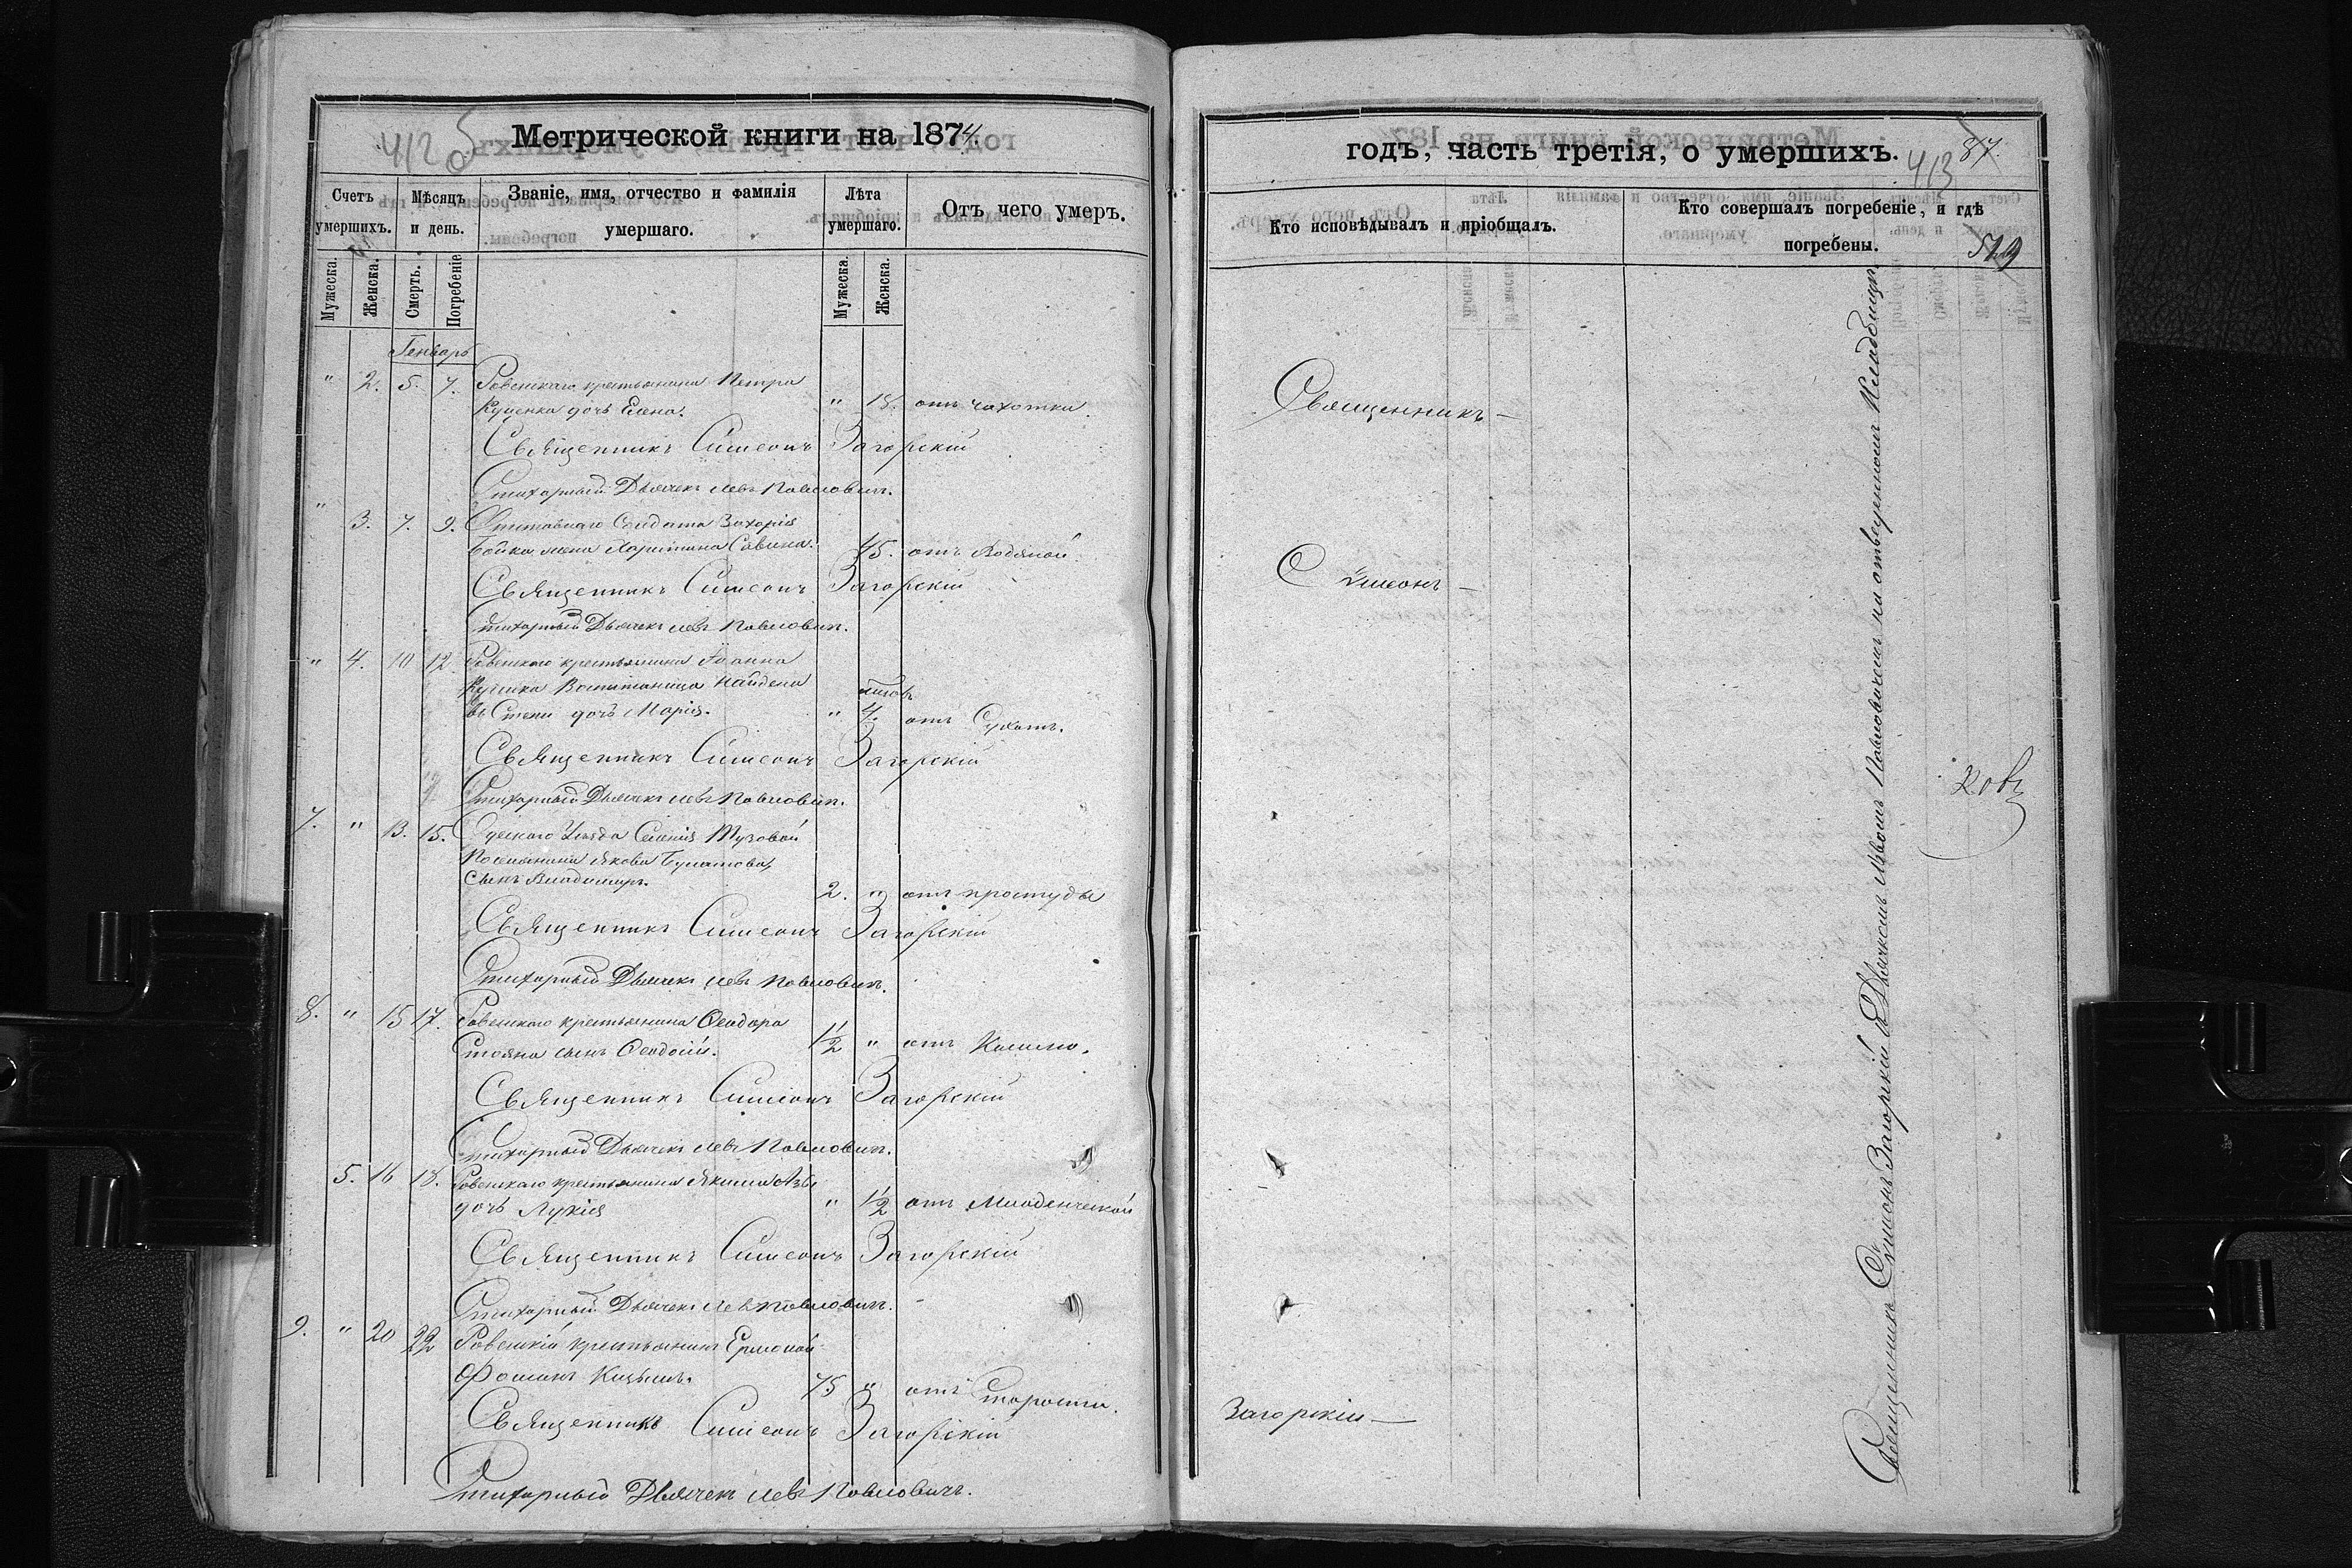 412 об
Метрической книги на 1874.
Счетъ умершихъ.
Мѣсяцъ и день.
Званіе, имя, отчество и фамилія умершаго.
Лѣта умершаго.
Отъ чего умеръ.
Мужеска.
Женска.
Смерть.
Погребеніе
Мужеска.
Женска.
Генварь
" 2. 5. 7. Ровенскаго крестьянина Петра
дочь Елена. " 18. отъ чахотки.
Священникъ Симеонъ Загорскій
Стихарный Дьячекъ Левъ Павловичъ.
" 3. 7. 9. Отставнаго Солдата Захарія
Бойка жена Харитина Савина. 45. отъ Водяной.
Священникъ Симеонъ Загорскій
Стихарный Дьячекъ Левъ Павловичъ.
" 4. 10 12 Ровенскаго крестьянина Іоанна
Воспитаница Найдена
въ Степи дочь Марія. " 4. отъ Сухотъ.
Священникъ Симеонъ Загорскій
Стихарный Дьячекъ Левъ Павловичъ.
7. " 13. 15. Одескаго Уѣзда Селенія
Поселянина Якова Булатова,
сынъ Владимиръ. 2. " отъ простуды
Священникъ Симеонъ Загорскій
Стихарный Дьячекъ Левъ Павловичъ.
8. " 15 17. Ровенскаго крестьянина Ѳеодора
Стояна сынъ Ѳеодосій. 1/2 " отъ Кашлю.
Священникъ Симеонъ Загорскій
Стихарный Дьячекъ Левъ Павловичъ.
5. 16 18. Ровенскаго крестьянина Якима
дочь Лукія " 1/2 отъ Младенческой
Священникъ Симеонъ Загорскій
Стихарный Дьячекъ Левъ Павловичъ.
9. " 20 22 Ровенскій крестьянинъ Ермолай
Фоминъ 75 " отъ Старости.
Священникъ Симеонъ Загорскій
Стихарный Дьячекъ Левъ Павловичъ.
годъ, часть третія, о умершихъ.
413
87.
Кто исповѣдывалъ и пріобщалъ.
Кто совершалъ погребеніе, и гдѣ погребены.
Священникъ —
Симеонъ —
Загорскій —
Священникъ Симеонъ Загорскій съ Дьячкомъ Львомъ Павловичемъ на отведенномъ Кладбищѣ.